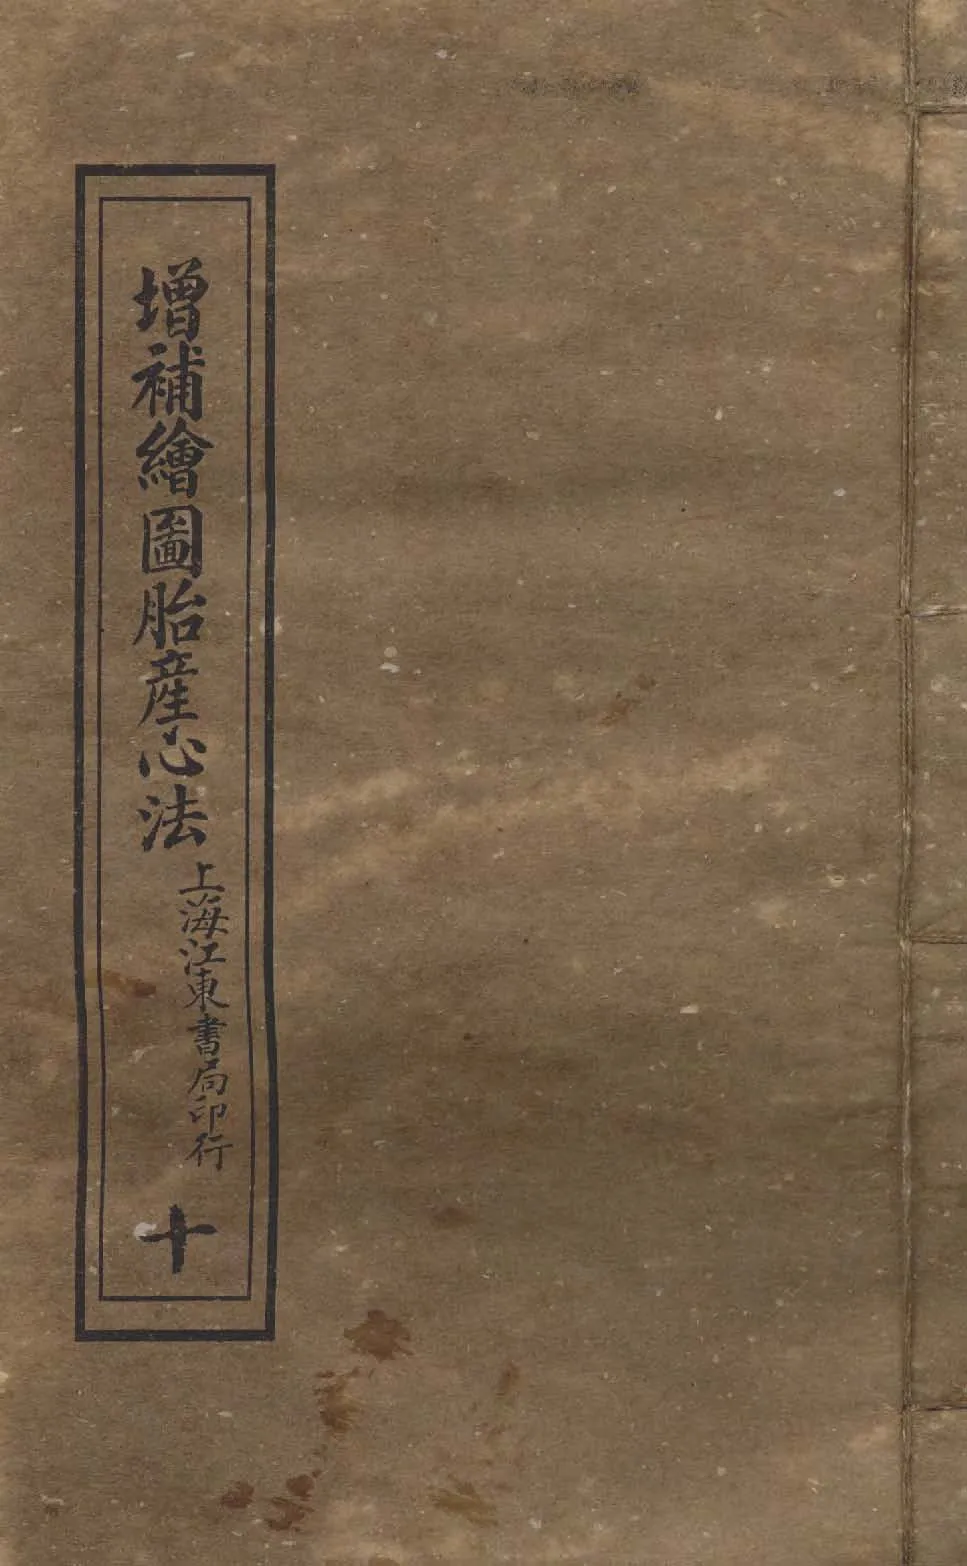 增補繪圖胎產心法
上海江東書局印行
十